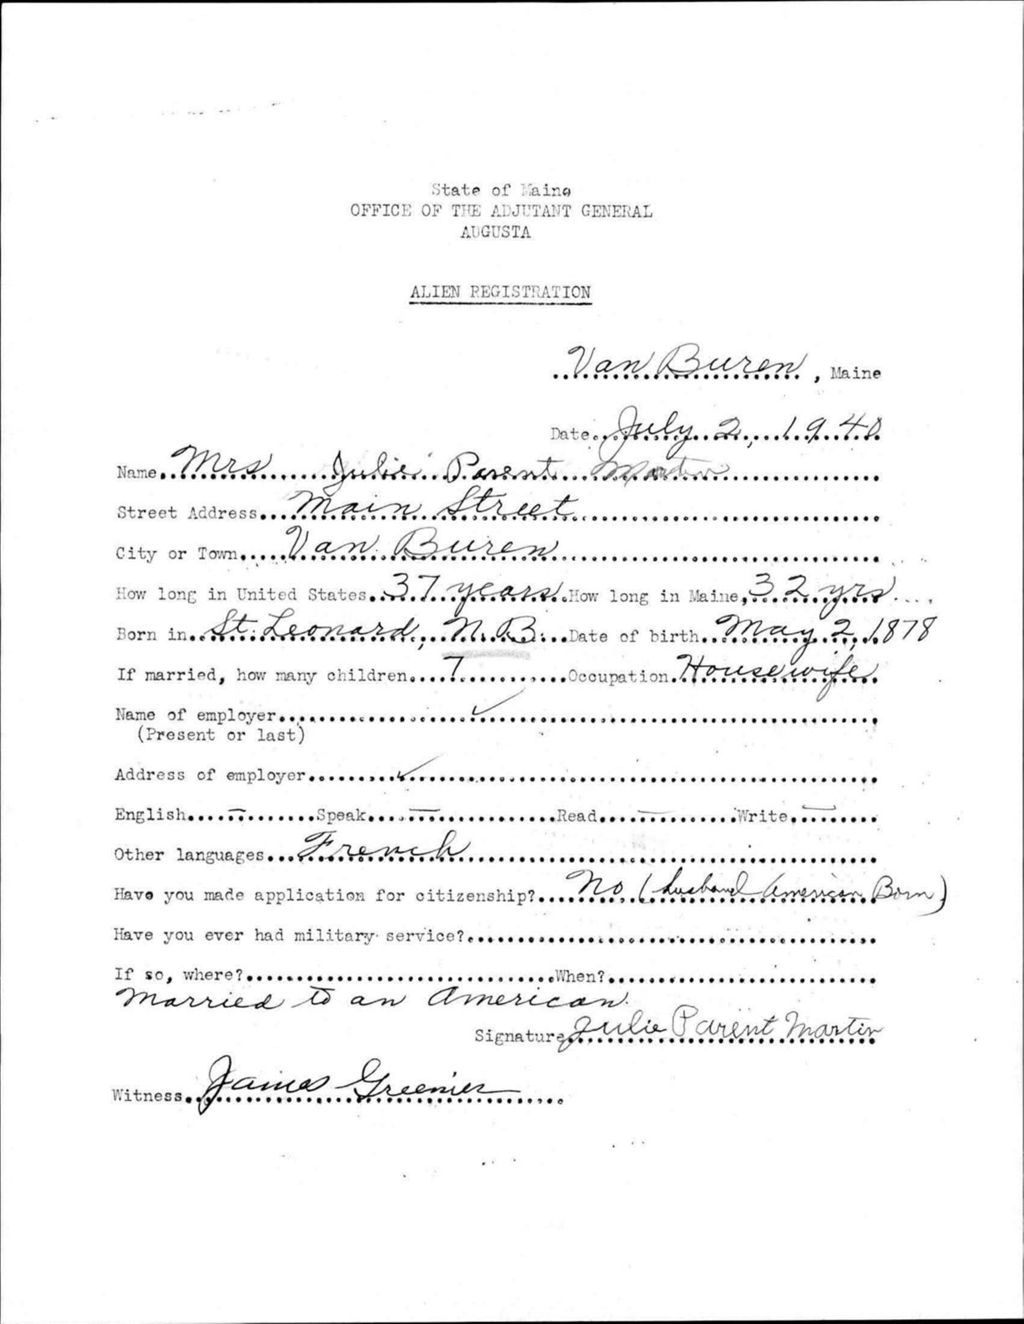 State of Maine
OFFICE OF THE ADJUTANT GENERAL
AUGUSTA
ALIEN REGISTRATION
Van Buren, Maine
Date July 2, 1940
Name Mrs Julie Parent Martin
Street Address Main Street
City or Town Van Buren
How long in United States 37 years How long in Maine 32 yrs
Born in St. Leonard, N.B. Date of birth May 2, 1878
If married, how many children 7 Occupation Housewife
Name of employer ✓
(Present or last)
Address of employer ✓
English — Speak — Read — Write —
Other languages French
Have you made application for citizenship? No (husband American Born)
Have you ever had military service?
If so, where? When?
Married to an American
Signature Julie Parent Martin
Witness James Greenier